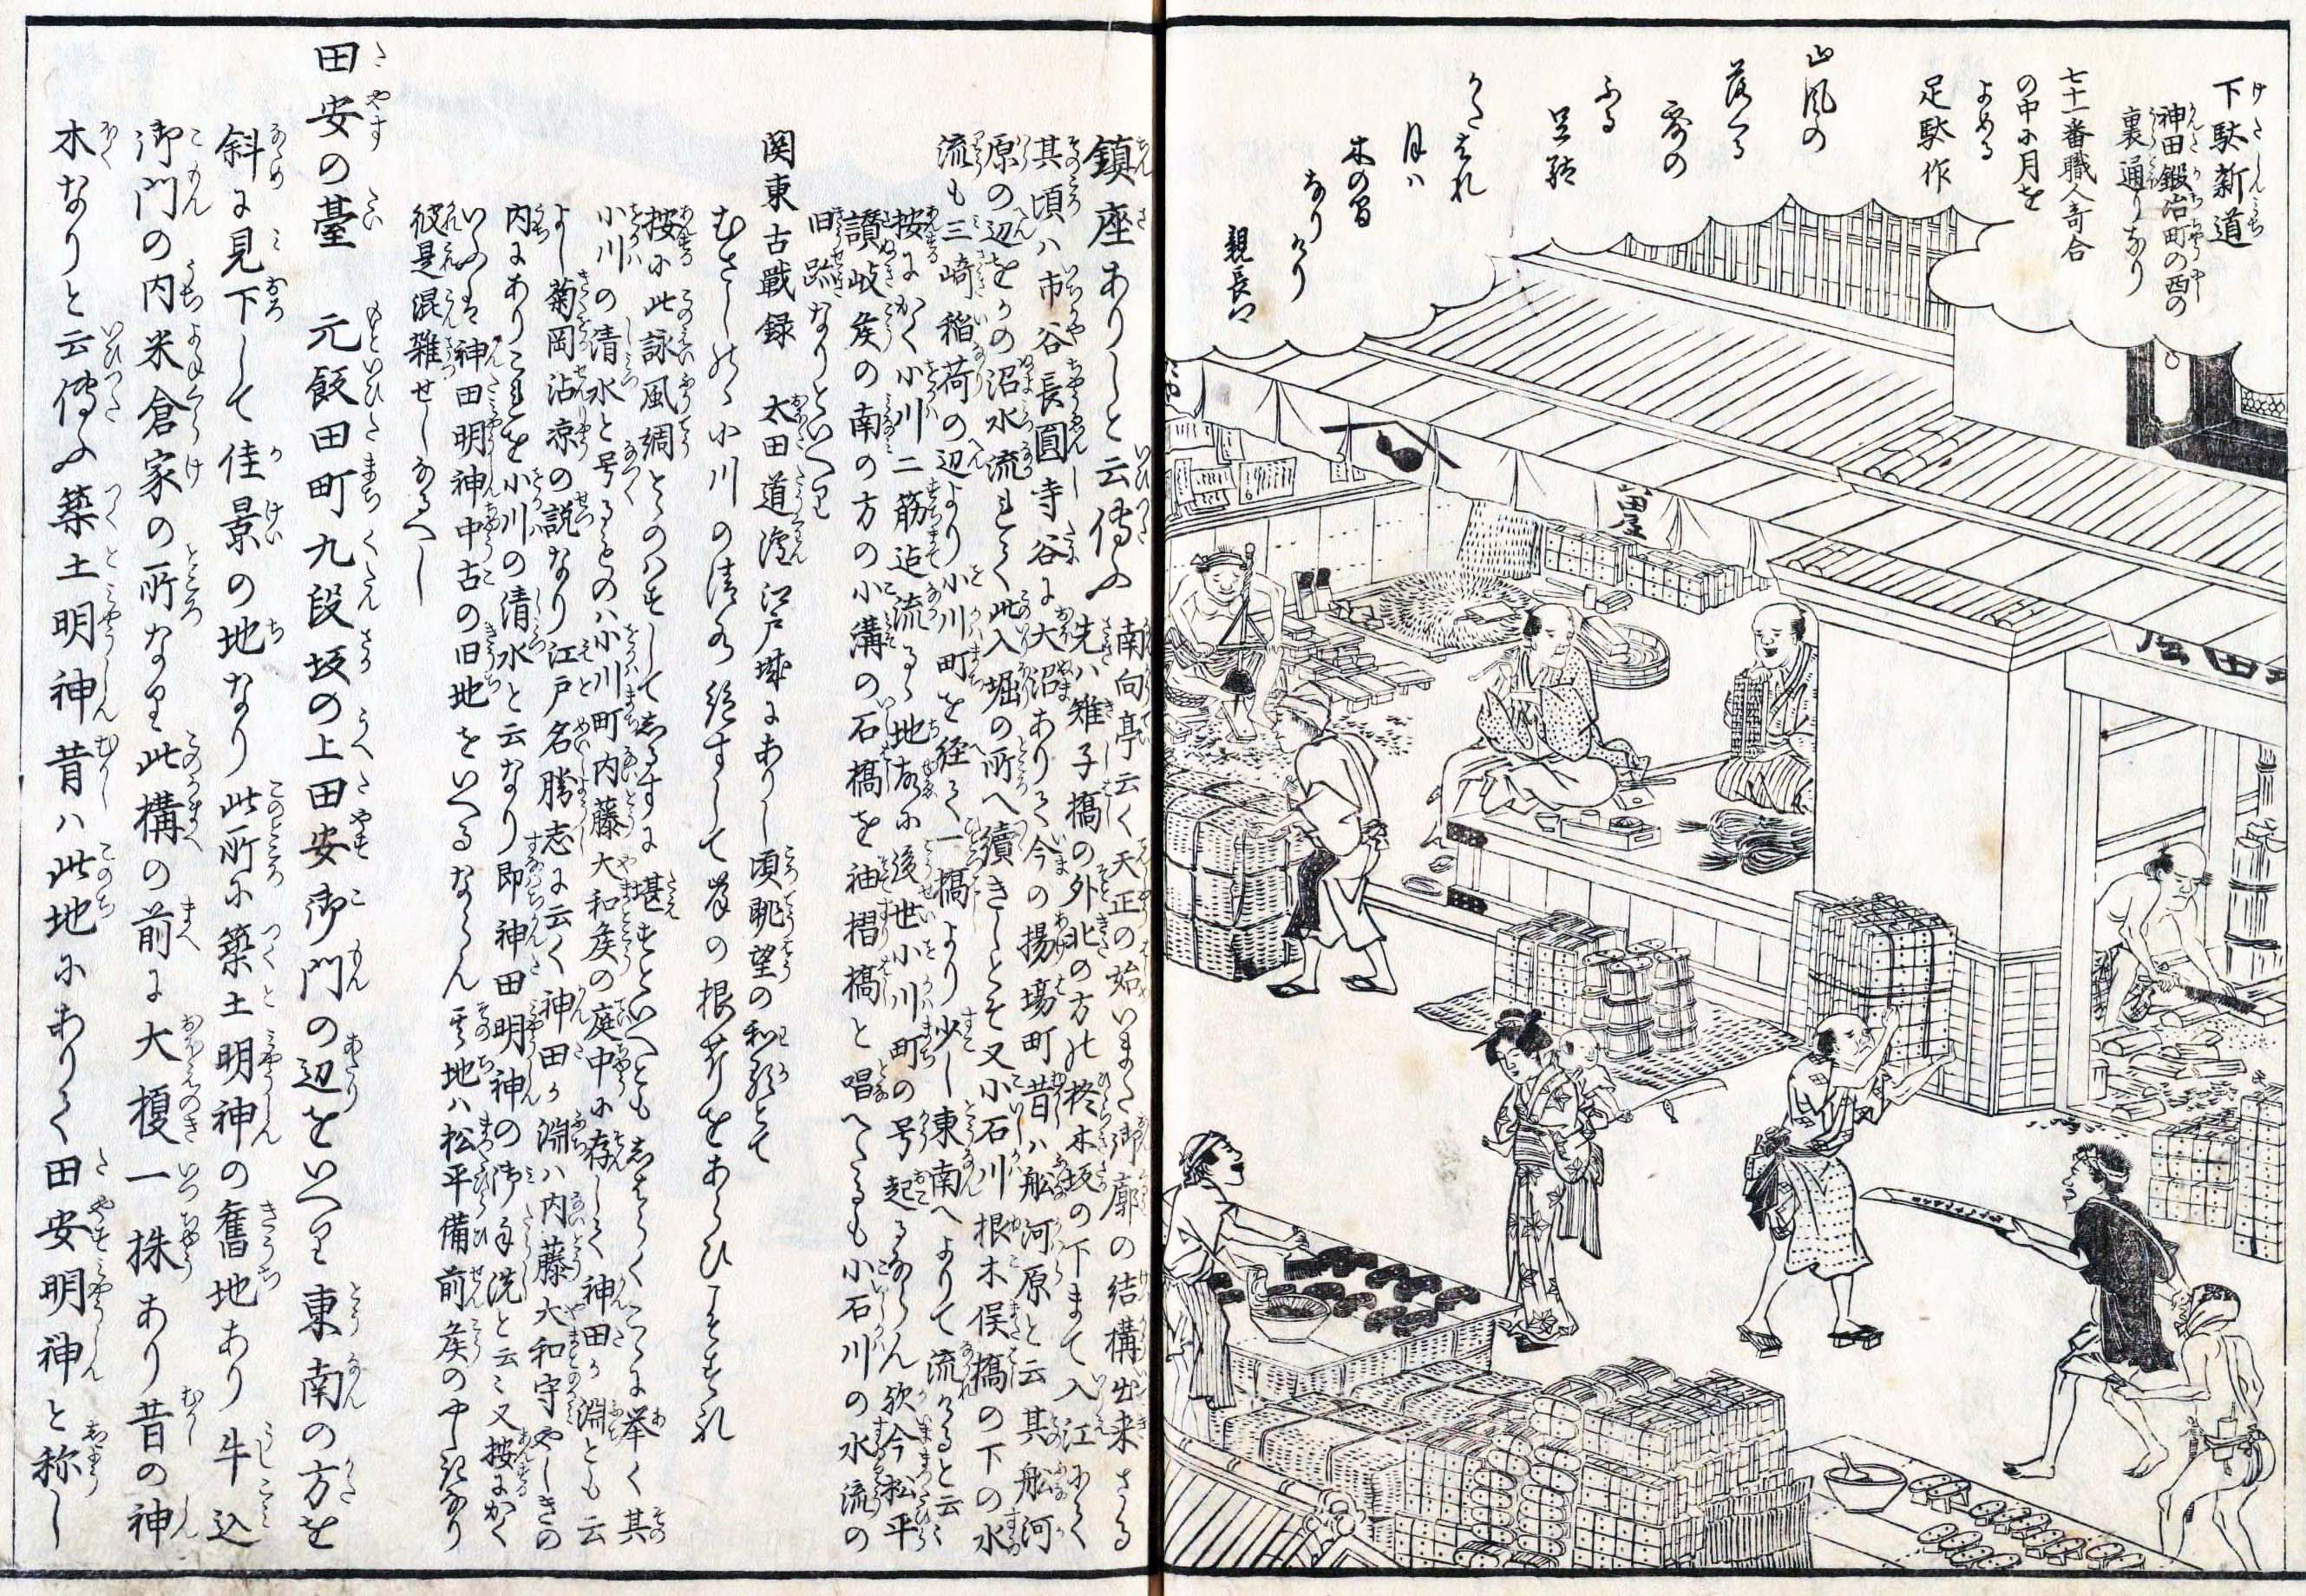 下駄新道
神田鍛冶町の西の
裏通りなり
七十一番職人哥合
の中に月を
よめる
足駄作
山風の
落くる
露の
ふる
足駄
かたはれ
月ハ
木の間
なりけり
親長卿
鎮座ありしと云傳ふ
南向亭云く天正の始いまた御廓の結構出来さる
先ハ雉子橋の外北の方の柊木坂の下まて入江にて
其頃ハ市谷長圓寺谷に大沼ありて今の揚場町昔ハ舩河原と云其舩河
原の辺をかの沼水流れて此入堀の所へ續きしとそ又小石川根木俣橋の下の水
流も三崎稲荷の辺より小川町を経て一橋より少し東南へよりて流れけると云々
按にかく小川二筋迠流るゝ地故に後世小川町の号起るならん欤今松平
讃岐矦の南の方の小溝の石橋を袖摺橋と唱へたるも小石川の水流の
旧跡なりといへり
関東古戰録
太田道灌江戸城にありし頃眺望の和歌とて
むさしのゝ小川の清水絶すして岸の根芹をあらひこそすれ
按に此詠風綢とゝのハすしてしるすに堪すといへともしはらくこゝに挙く其
小川の清水と号くるものハ小川町内藤大和矦の庭中に存して神田か淵とも云
よし菊岡沾凉の説なり江戸名勝志に云く神田か淵ハ内藤大和守やしきの
内にありこれを小川の清水と云なり即神田明神の御手洗と云々又按にかく
いふハ神田明神中古の旧地をいへるならん其地ハ松平備前矦の中
彼是混雑せしなるへし
田安の臺
元飯田町九段坂の上田安御門の辺をいへり東南の方を
斜に見下して佳景の地なり此所に築土明神の舊地あり牛込
御門の内米倉家の所なり此構の前に大榎一株あり昔の神
木なりと云傳ふ築土明神昔ハ此地にありて田安明神と称し
田屋